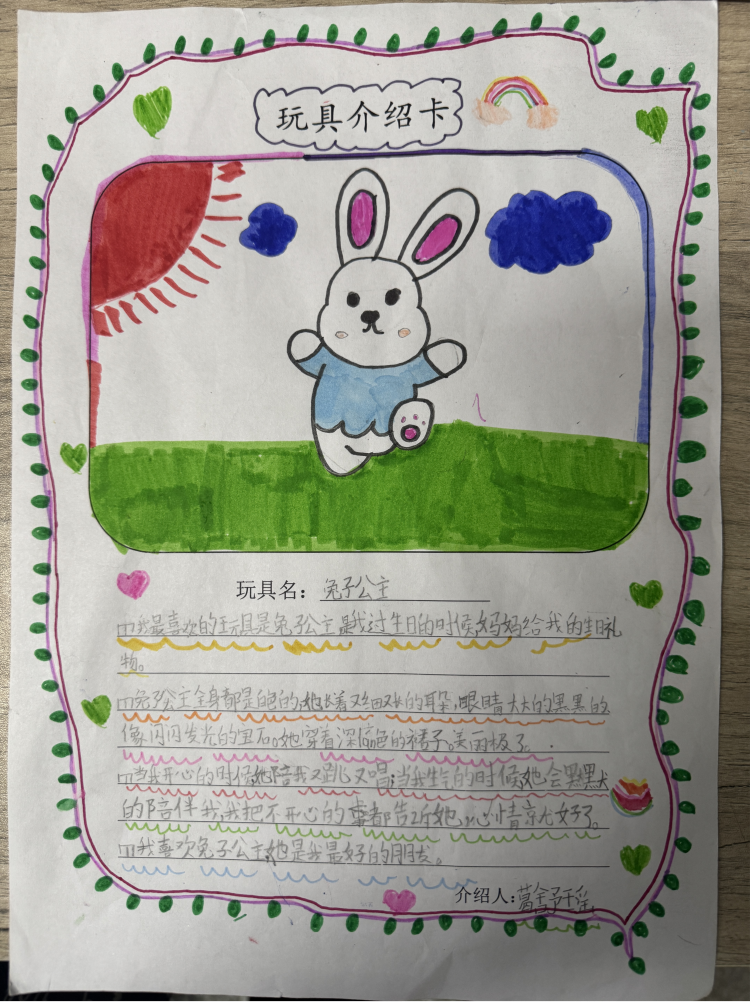 玩具介绍卡
玩具名：兔子公主
我最喜欢的玩具是兔子公主是我过生日的时候妈妈给我的生日礼
物。
兔子公主全身都是白色的,她长着又细又长的耳朵,眼睛大大的黑黑的
像闪闪发光的宝石。她穿着深蓝色的裙子。美丽极了。
当我开心的时候她陪我又跳又唱,当我生气的时候她会默默
的陪伴我,我把不开心的事都告诉她,心情就好了。
我喜欢兔子公主,她是我最好的朋友。
介绍人：葛